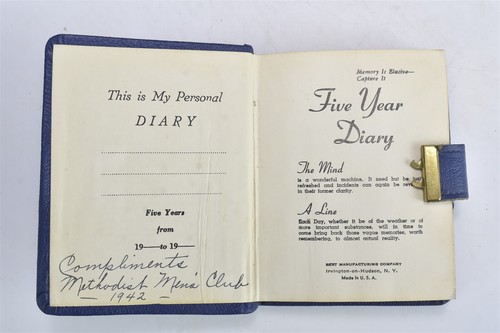 This is My Personal
DIARY
Five Years
from
19——to 19——
Compliments
Methodist Men's Club
— 1942 —
Memory Is Elusive—
Capture It
Five Year
Diary
The Mind
is a wonderful machine. It need but be just
refreshed and incidents can again be revived
in their former clarity.
A Line
Each Day, whether it be of the weather or of
more important substances, will in time to
come bring back those vague memories, worth
remembering, to almost actual reality.
BERT MANUFACTURING COMPANY
Irvington-on-Hudson, N. Y.
Made in U. S. A.